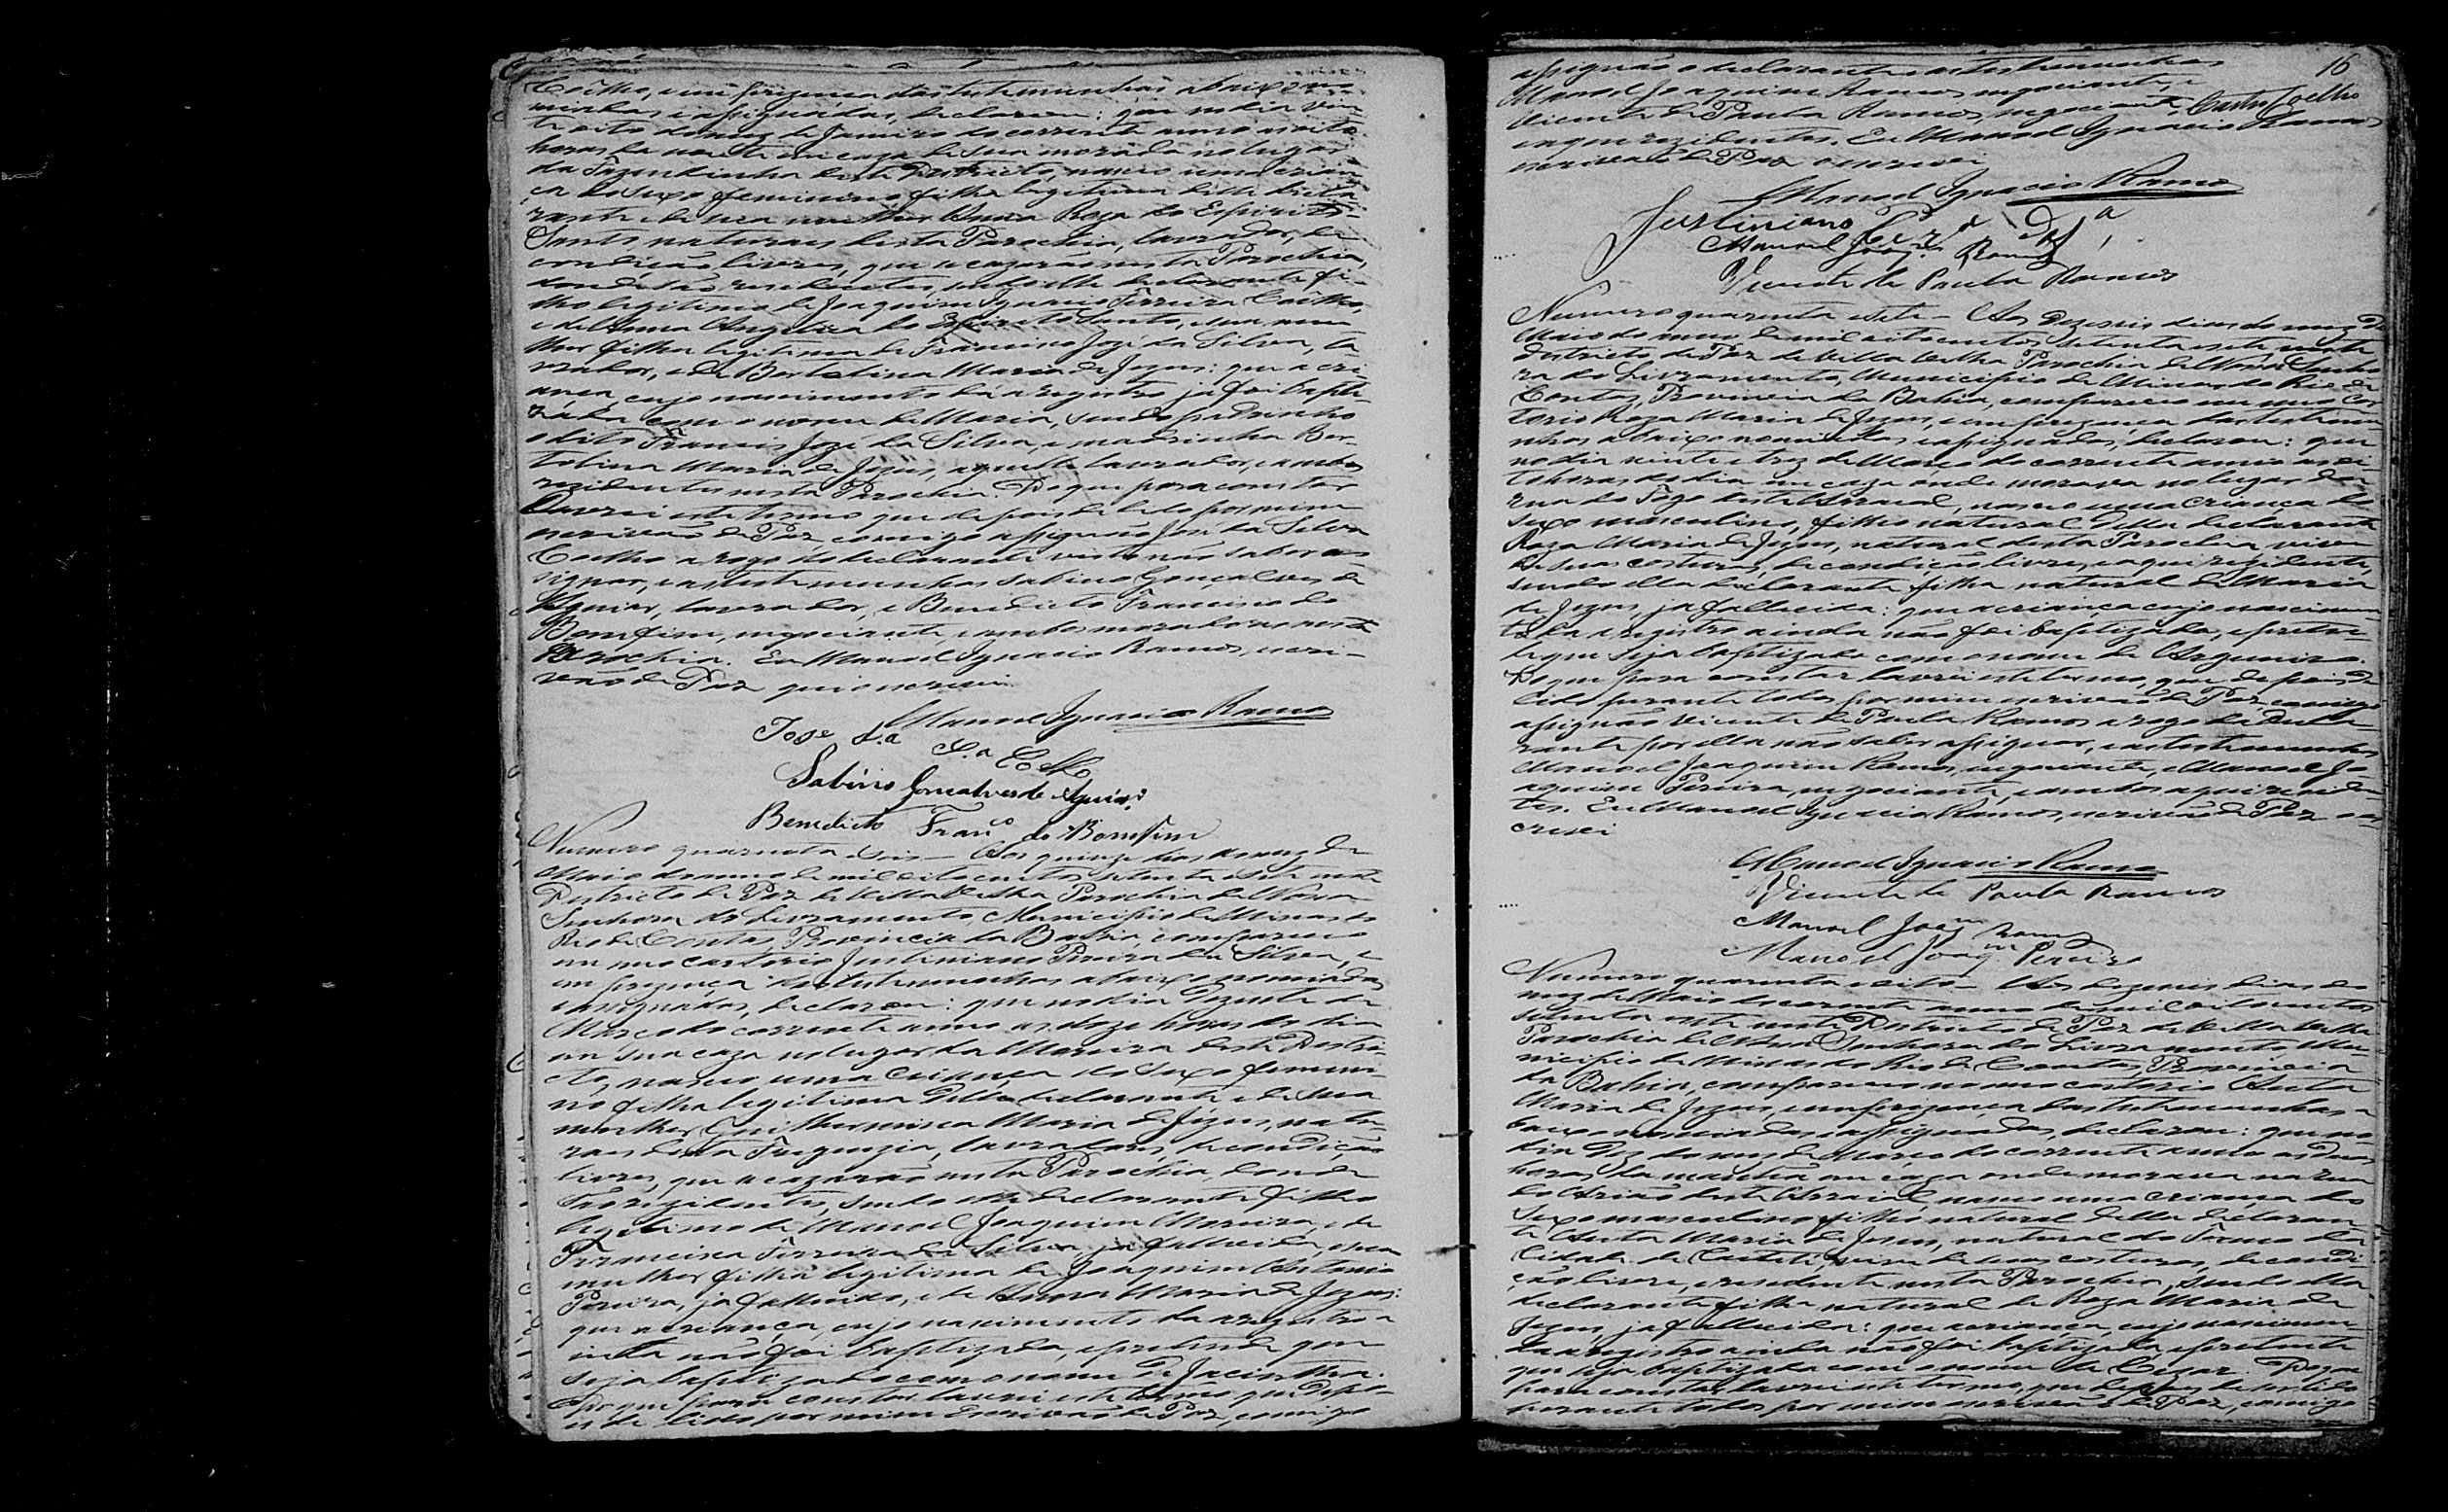 Coêlho, e em prezença das testemunhas abaixo no-
minadas e assignadas, declarou: que no dia vin-
te oito do mez de Janeiro do corrente anno as oito
horas da noute em caza de sua morada no lugar
da Fazendinha deste Districto, nasceo uma crian-
ça do sexo feminino filha legitima delle decla-
rante e de sua mulher Anna Roza do Espirito
Santo naturaes desta Parochia, lavrador, de
condição livres, que se cazarão nesta Parochia,
donde são residentes, sendo elle declarante fi-
lho legitimo de Joaquim Ignacio Ferreira Coêlho,
e de Anna Angelica do Espirito Santo, e sua mu-
lher filha legitima de Francisco Jozé da Silva, la-
vrador, e de Bertolina Maria de Jezus: que a cri-
ança, cujo nascimento dá a registro já foi bapti-
zada com o nome de Maria, sendo padrinho
o dito Francisco Jozé da Silva, e madrinha Ber-
tolina Maria de Jezus, aquelle lavrador, e ambos
rezidentes nesta Parochia. Do que para constar
lavrei este termo que depois de lido por mim
escrivão de Paz comigo assignão José da Silva
Coelho a rogo do declarante visto não saber as-
signar, e as testemunhas Sabino Gonçalves de
Aguiar, lavrador, e Benedicto Francisco do
Bomfim, negociante e ambos moradores nesta
Parochia. Eu Manoel Ignacio Ramos, escri-
vão de Paz que o escrevi
Manoel Ignacio Ramos
José da S.a Co.lho
Sabino Gonçalves de Aguiar
Benedicto Fran.co do Bomfim
Numero quarenta e seis — Aos quinze dias do mez de
Maio do anno de mil oito centos setenta e sete neste
Districto de Paz de Villa Velha Parochia de Nossa
Senhora do Livramento, Municipio de Minas do
Rio de Contas, Provincia da Bahia, compareceo
em meo cartorio Justiniano Pereira da Silva, e
em prezença das testemunhas abaixo nomiadas
e assignadas, declarou: que no dia dezesete de
Março do corrente anno as doze horas do dia
em sua caza no lugar da Moreira deste Distri-
cto, nasceo uma criança do sexo femini-
no filha legitima delle declarante e de sua
mulher Guilhermina Maria de Jezus, natu-
raes desta Freguezia, lavradores, de condição
livres, que se cazarão nesta Parochia, donde
são rezidentes, sendo elle declarante filho
legitimo de Manoel Joaquim Moreira, e de
Francisca Ferreira da Silva, já fallecida, e sua
mulher filha legitima de Joaquim Antonio
Pereira, já fallecido, e de Anna Maria de Jezus:
que a criança, cujo nascimento da a registro a
inda não foi baptizada, e pretende que
seja baptizada com o nome de Jacintha.
Do que para constar lavrei este termo que depo-
is de lido por mim Escrivão de Paz, comigo
16
assignão o declarante e as testemunhas
Manoel Joaquim Ramos negociante, e
Vicente de Paula Ramos, negociante,
aqui rezidentes. Eu Manoel Ignacio Ramos
escrivão de Paz o escrevi
Manoel Ignacio Ramos
Justiniano
Manoel Joaq.m Ramos
Vicente de Paula Ramos
Numero quarenta e sete — Aos dezeseis dias do mez de
Maio do anno de mil oito centos setenta e sete neste
Districto de Paz de Villa Velha Parochia de Nossa Senho-
ra do Livramento, Municipio de Minas do Rio de
Contas, Provincia da Bahia, compareceo em meo car-
torio Roza Maria de Jezus, e em prezença das testemu-
nhas abaixo nomiadas e assignadas, declarou: que
no dia vinte e trez de Março do corrente anno as oi-
to horas do dia em caza onde morava no lugar da
rua do Fogo deste Arraial, nasceo uma criança do
sexo masculino, filho natural della declarante
Roza Maria de Jezus, natural desta Parochia, vive
de suas costuras, de condição livre, e aqui rezidente,
sendo ella declarante filha natural de Maria
de Jezus, já fallecida: que a criança cujo nascimen-
to da a registro ainda não foi baptizada, e preten-
de que seja baptizada com o nome de Argemiro.
Do que para constar lavrei este termo, que depois de
lido perante todos por mim escrivão de Paz, comigo
assignão Vicente de Paula Ramos a rogo da decla-
rante por ella não saber assignar, e as testemunhas
Manoel Joaquim Ramos, negociante, e Manoel Jo-
aquim Pereira, negociante, e ambos aqui reziden-
tes. Eu Manoel Ignacio Ramos, escrivão de Paz o es-
crevi
Manoel Ignacio Ramos
Vicente de Paula Ramos
Manoel Joaq.m Ramos
Manoel Joaq.m Pereira
Numero quarenta e oito — Aos dezeseis dias do
mez de Maio do corrente anno de mil oito centos
setenta e sete neste Districto de Paz de Villa Velha
Parochia de Nossa Senhora do Livramento Mu-
nicipio de Minas do Rio de Contas, Provincia
da Bahia, compareceo no meo cartorio Anta
Maria de Jezus, e em prezença das testemunhas a-
baixo nomiadas e assignadas, declarou: que no
dia dez do mez de Março do corrente anno as duas
horas da manhãa em caza onde morava na rua
do Arião deste Arraial, nasceo uma criança do
sexo masculino filho natural della declaran-
te Anta Maria de Jezus, natural do Termo da
Cidade de Caeteté, vive de suas costuras, de condi-
ção livre, e rezidente nesta Parochia, sendo ella
declarante filha natural de Roza Maria de
Jezus, já fallecida: que a criança, cujo nascimento
da a registro ainda não foi baptizada, e pretende
que seja baptizada com o nome de Cezar. Do que
para constar lavrei este termo, que depois de ser lido
perante todos por mim escrivão de Paz, comigo